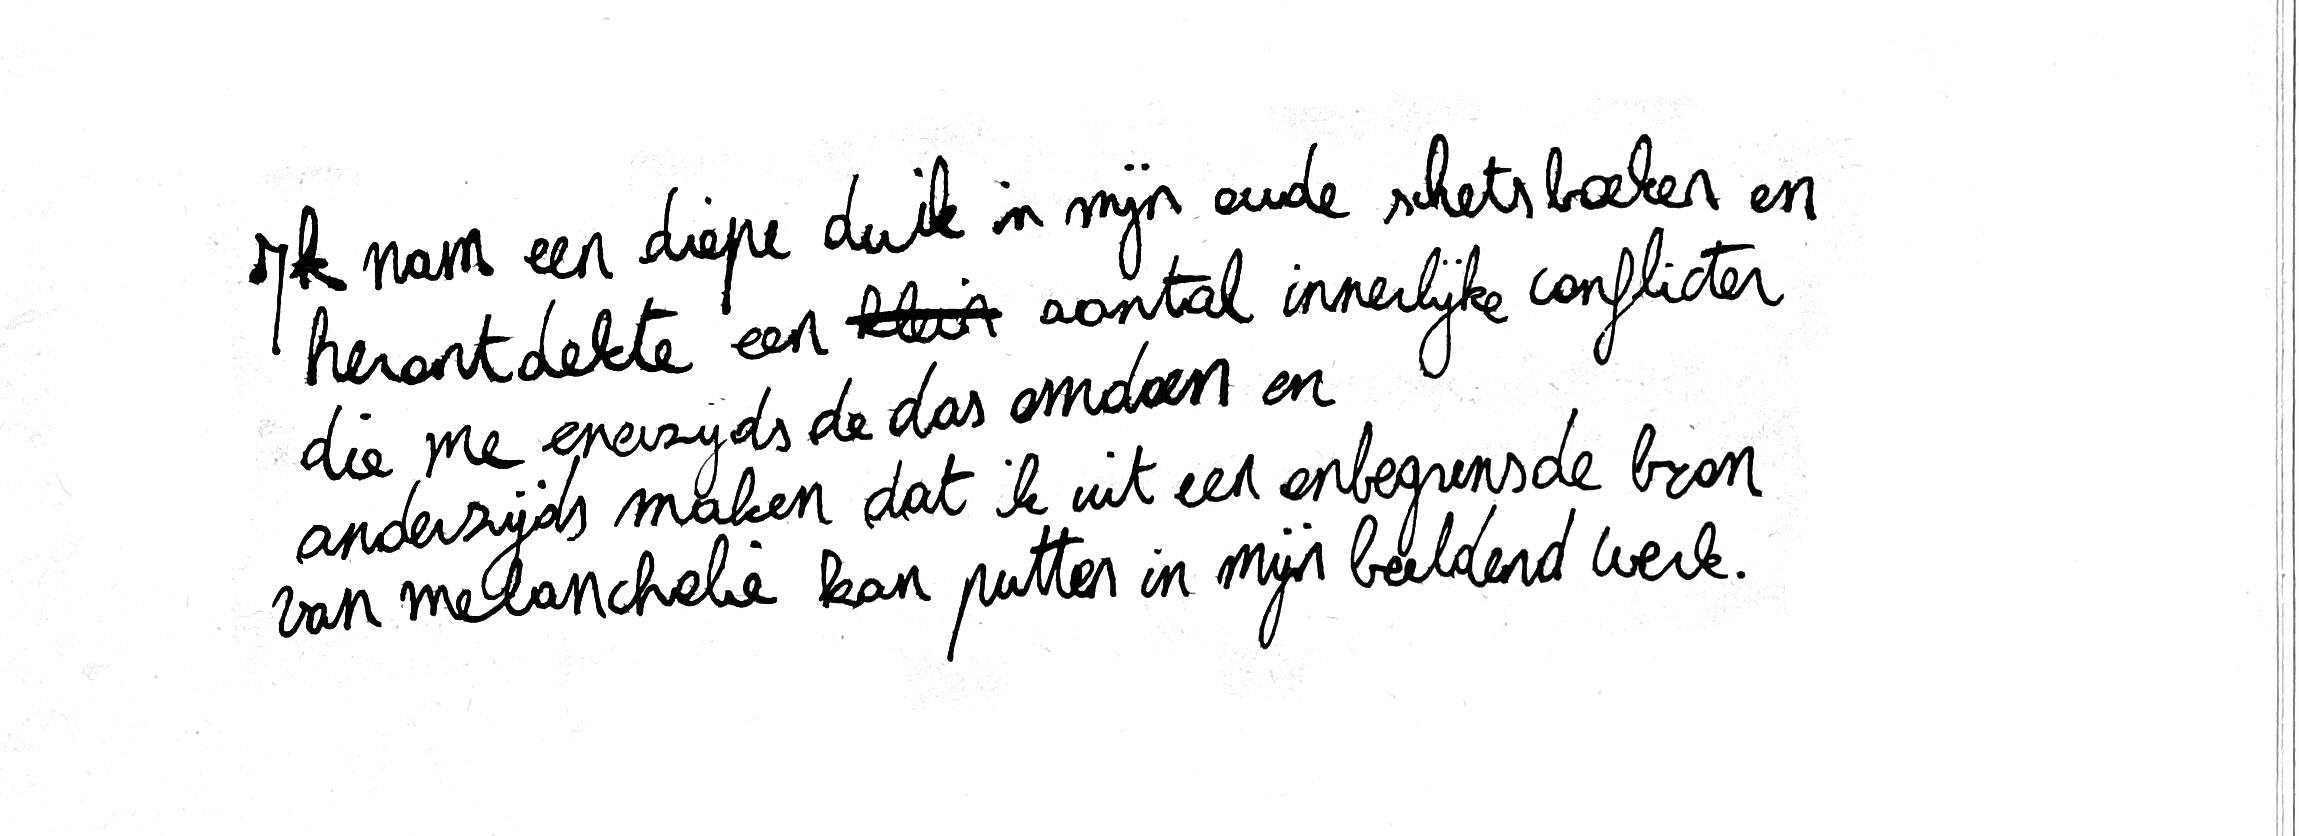 Ik nam een diepe duik in mijn oude schetsboeken en
herontdekte een klein aantal innerlijke conflicten
die me enerzijds de das omdoen en
anderzijds maken dat ik uit een onbegrensde bron
van melancholie kan putten in mijn beeldend werk.